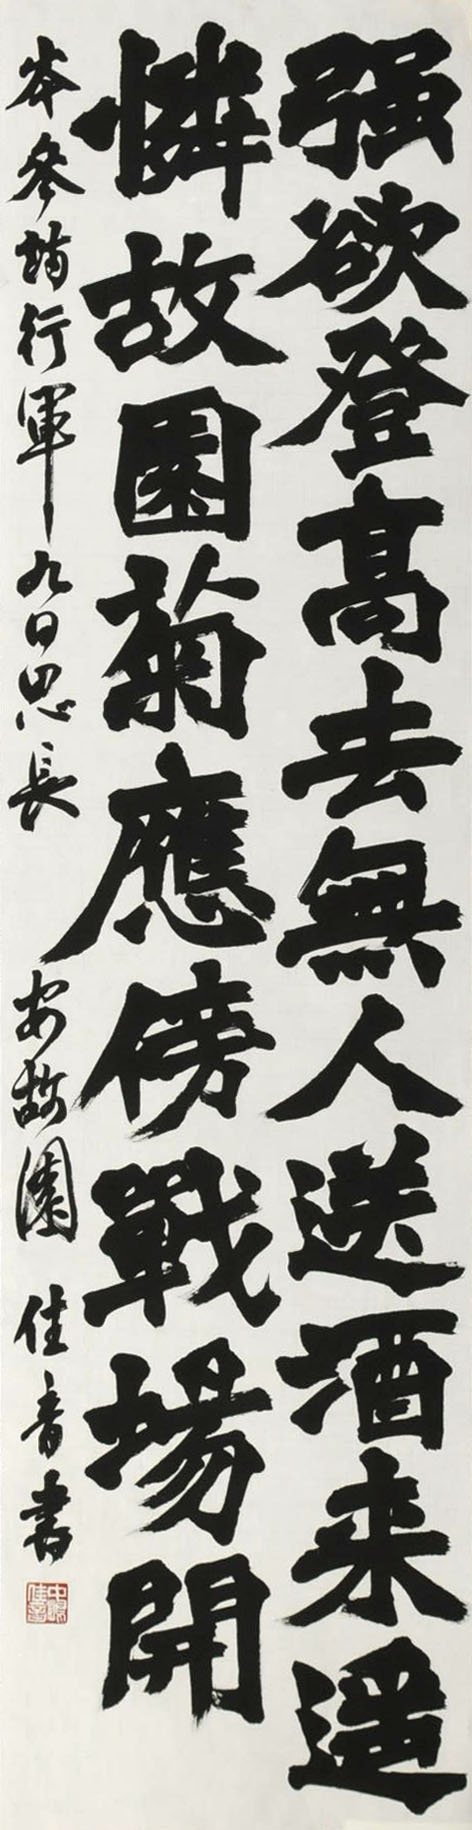 强欲登髙去無人送酒来遥
憐故園菊應傍戰場開
岑参詩行軍九日思長安故園 佳音書